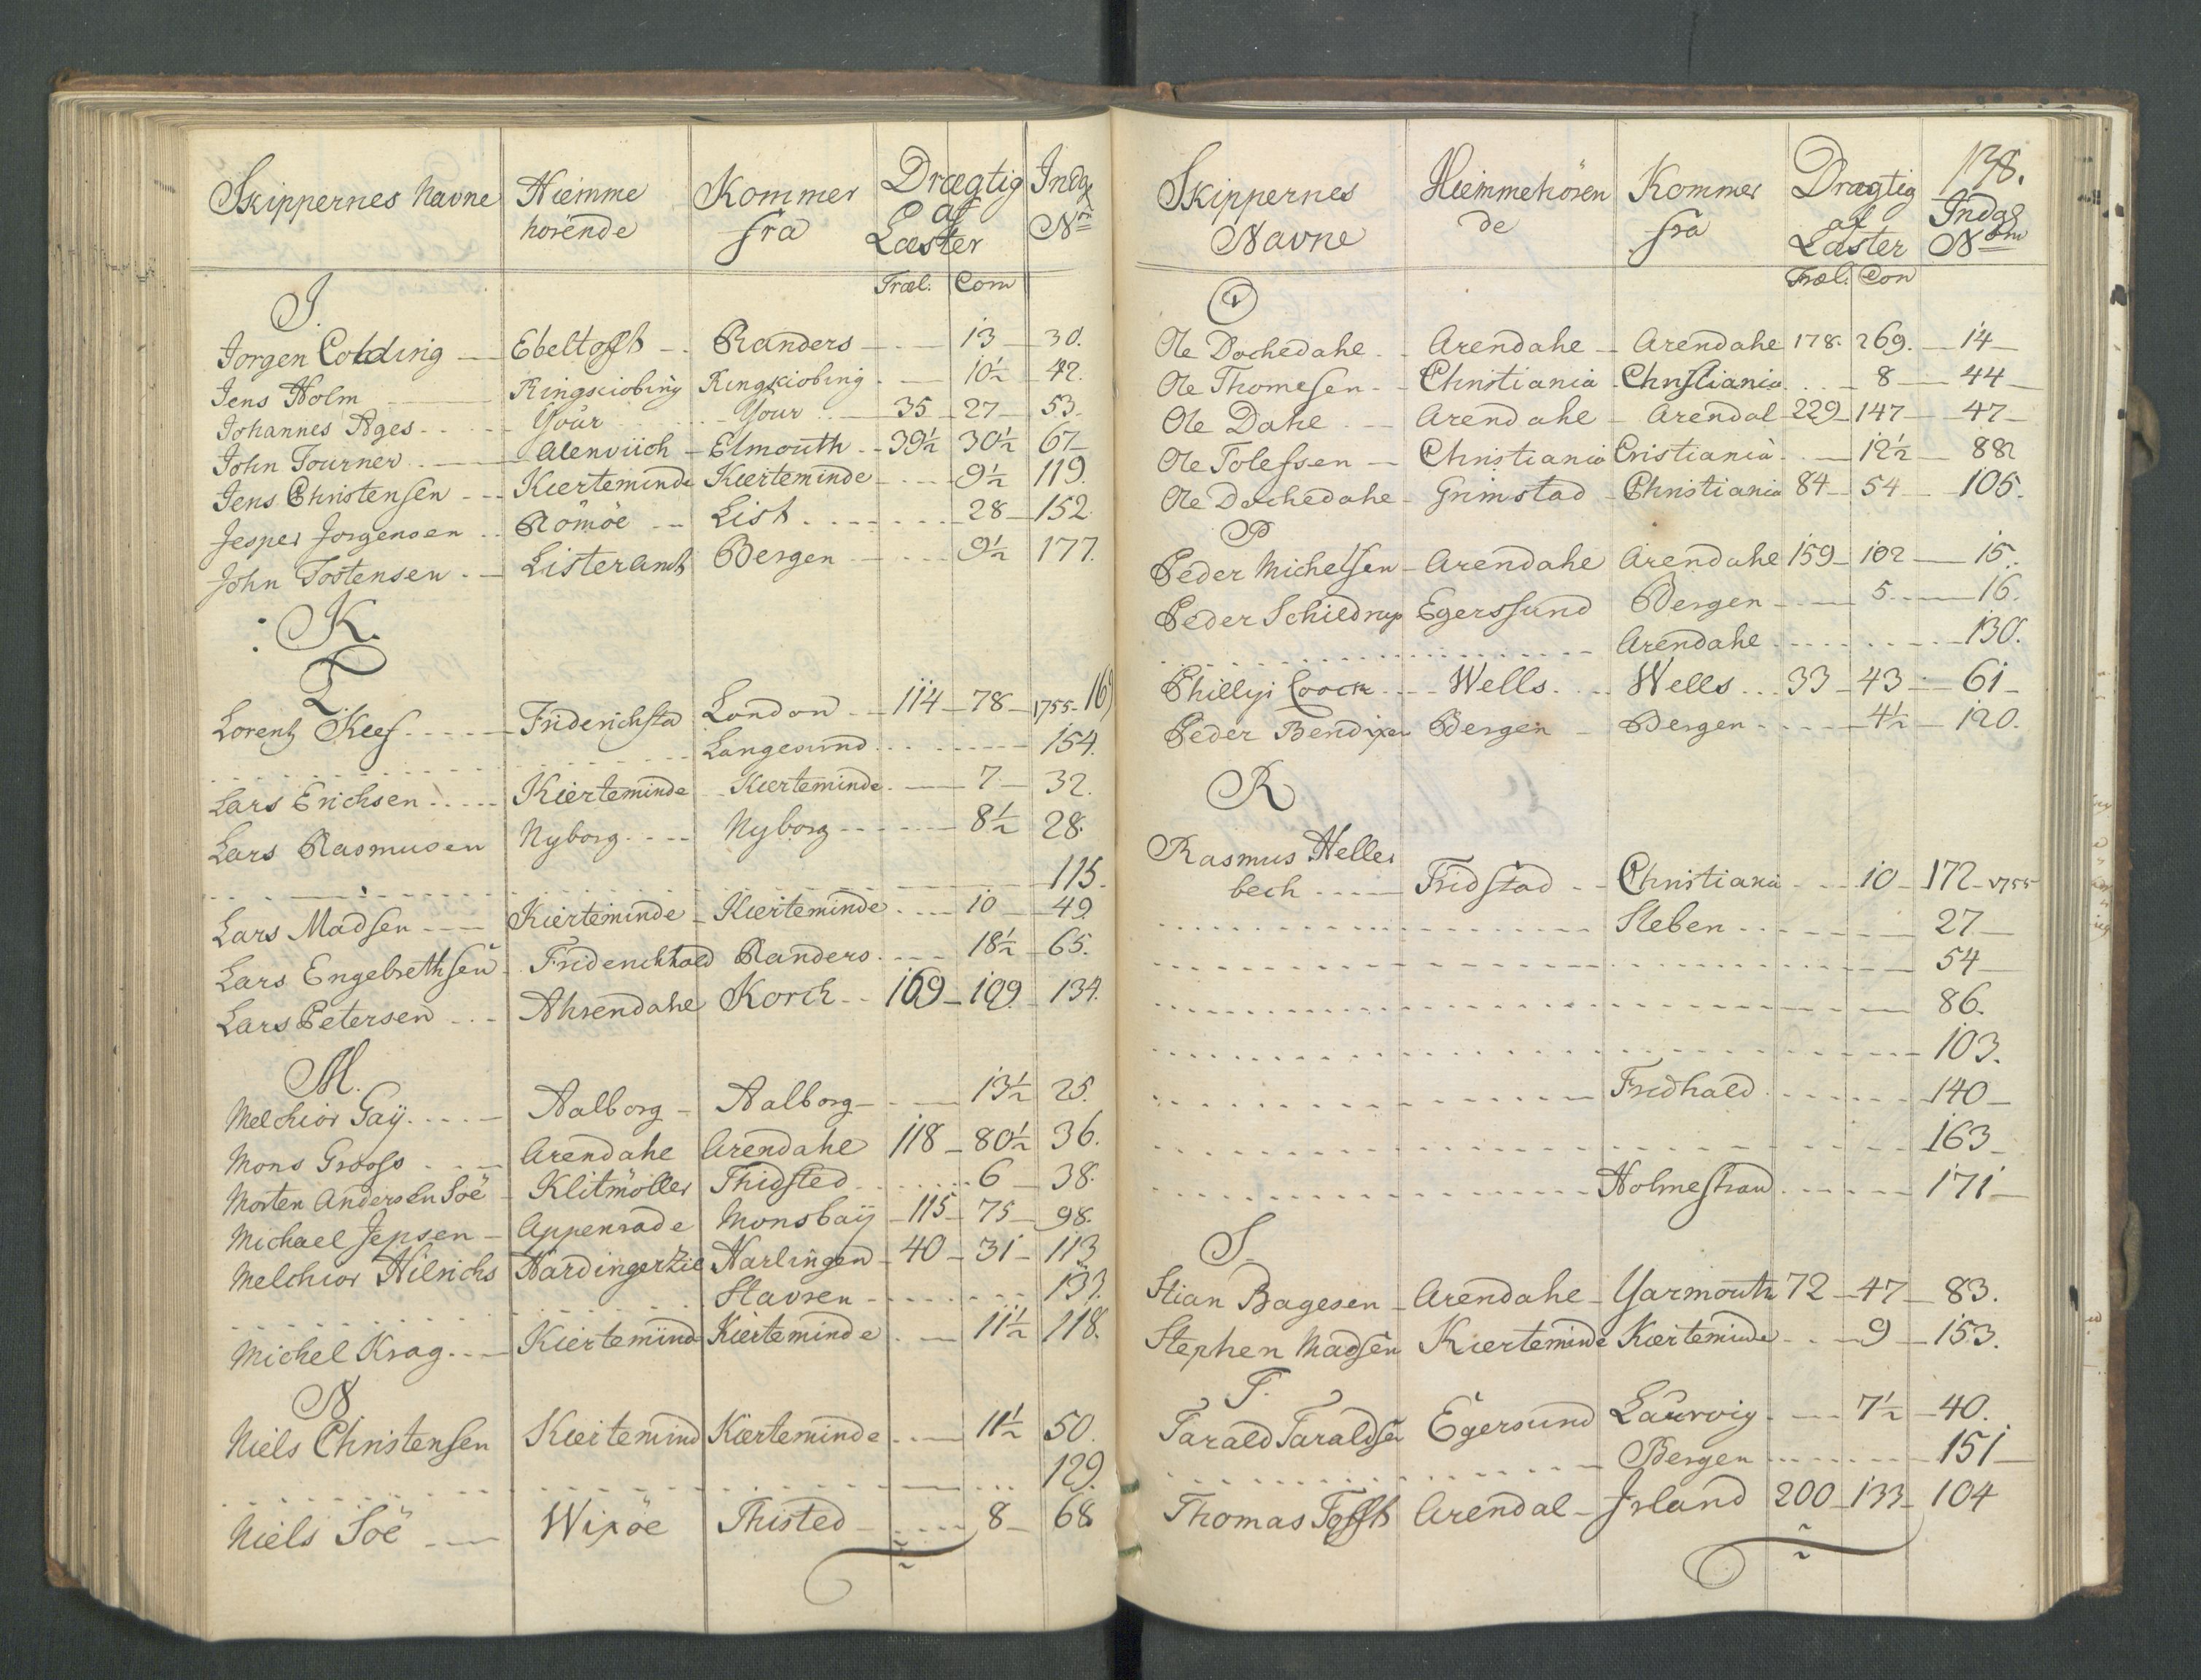 Skippernes Navne Hiemme Kommer Drægtig Indg
hörende fra af No
Læster
Træl. Com
J.
Jorgen Colding Ebeltofft Randers 13 30.
Jens Holm Ringkiobing Ringkiobing 10½ 42.
Johannes Ages Your Your 35 27 53
John Tourner Alenviich Elmouth 39½ 30½ 67
Jens Christensen Kierteminde Kierteminde 9½ 119.
Jesper Jorgensen Römöe List 28 152
John Tostensen Listeramt Bergen 9½ 177.
K.
L
Lorentz Kees Friderichsta London 114 78 1755 169
Langesund 154.
Lars Erichsen Kierteminde Kierteminde 7 32.
Lars Rasmusen Nyborg Nyborg 8½ 28.
115.
Lars Madsen Kierteminde Kierteminde 10 49.
Lars Engelbrethsen Friderichhald Randers 18½ 65.
Lars Petersen Ahrendahe Korck 169 109 134.
M.
Melchior Gaÿ Aalborg Aalborg 13½ 25.
Mons Grooss Arendahe Arendahe 118 80½ 36.
Morten Andersen Söe Klitmöller Thidsted 6 38.
Michael Jepsen Appenrade Monsbaÿ 115 75 98.
Melchior Hilrichs Hardingerzie Harlingen 40 31 113
Stavren 133.
Michel Krag Kierteminde Kierteminde 11½ 118.
N
Niels Christensen Kierteminde Kierteminde 11½ 50.
129.
Niels Söe Wixöe Thisted 8 68
138.
Skippernes Hiemmehören Kommer Drægtig Indg
Navne de fra af Nom
Læster
Træl. Con
O
Ole Dochedahe Arendahe Arendahe 178. 269. 14
Ole Thomesen Christiania Christiania 8 44
Ole Dahe Arendahe Arendal 229 147 47
Ole Tolefsen Christiania Cristiania 12½ 88
Ole Dochedahe Grimstad Christiania 84 54 105.
P
Peder Michelsen Arendahe Arendahe 159 102 15.
Peder Schieldrup Egerssund Bergen 5 16.
Arendahe 130.
Phillip Coock Wells Wells 33 43 61
Peder Bendixen Bergen Bergen 4½ 120.
R
Rasmus Heller
bech Fridstad Christiania 10 172 1755
Steben 27
54
86.
103.
Fridhald 140
163
Holmestrand 171
S
Stian Bagesen Arendahe Yarmouth 72 47 83.
Stephen Madsen Kierteminde Kierteminde 9 153.
T.
Tarald Taraldsen Egersund Laurvig 7½ 40.
Bergen 151
Thomas Tofft Arendal Irland 200 133 104